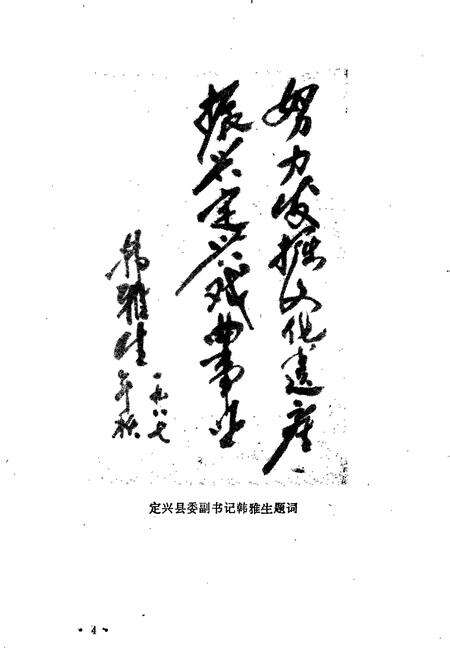 努力发掘文化遗产
振兴定兴戏曲事业
韩雅生
一九八七
年秋
定兴县委副书记韩雅生题词
· 4 ·